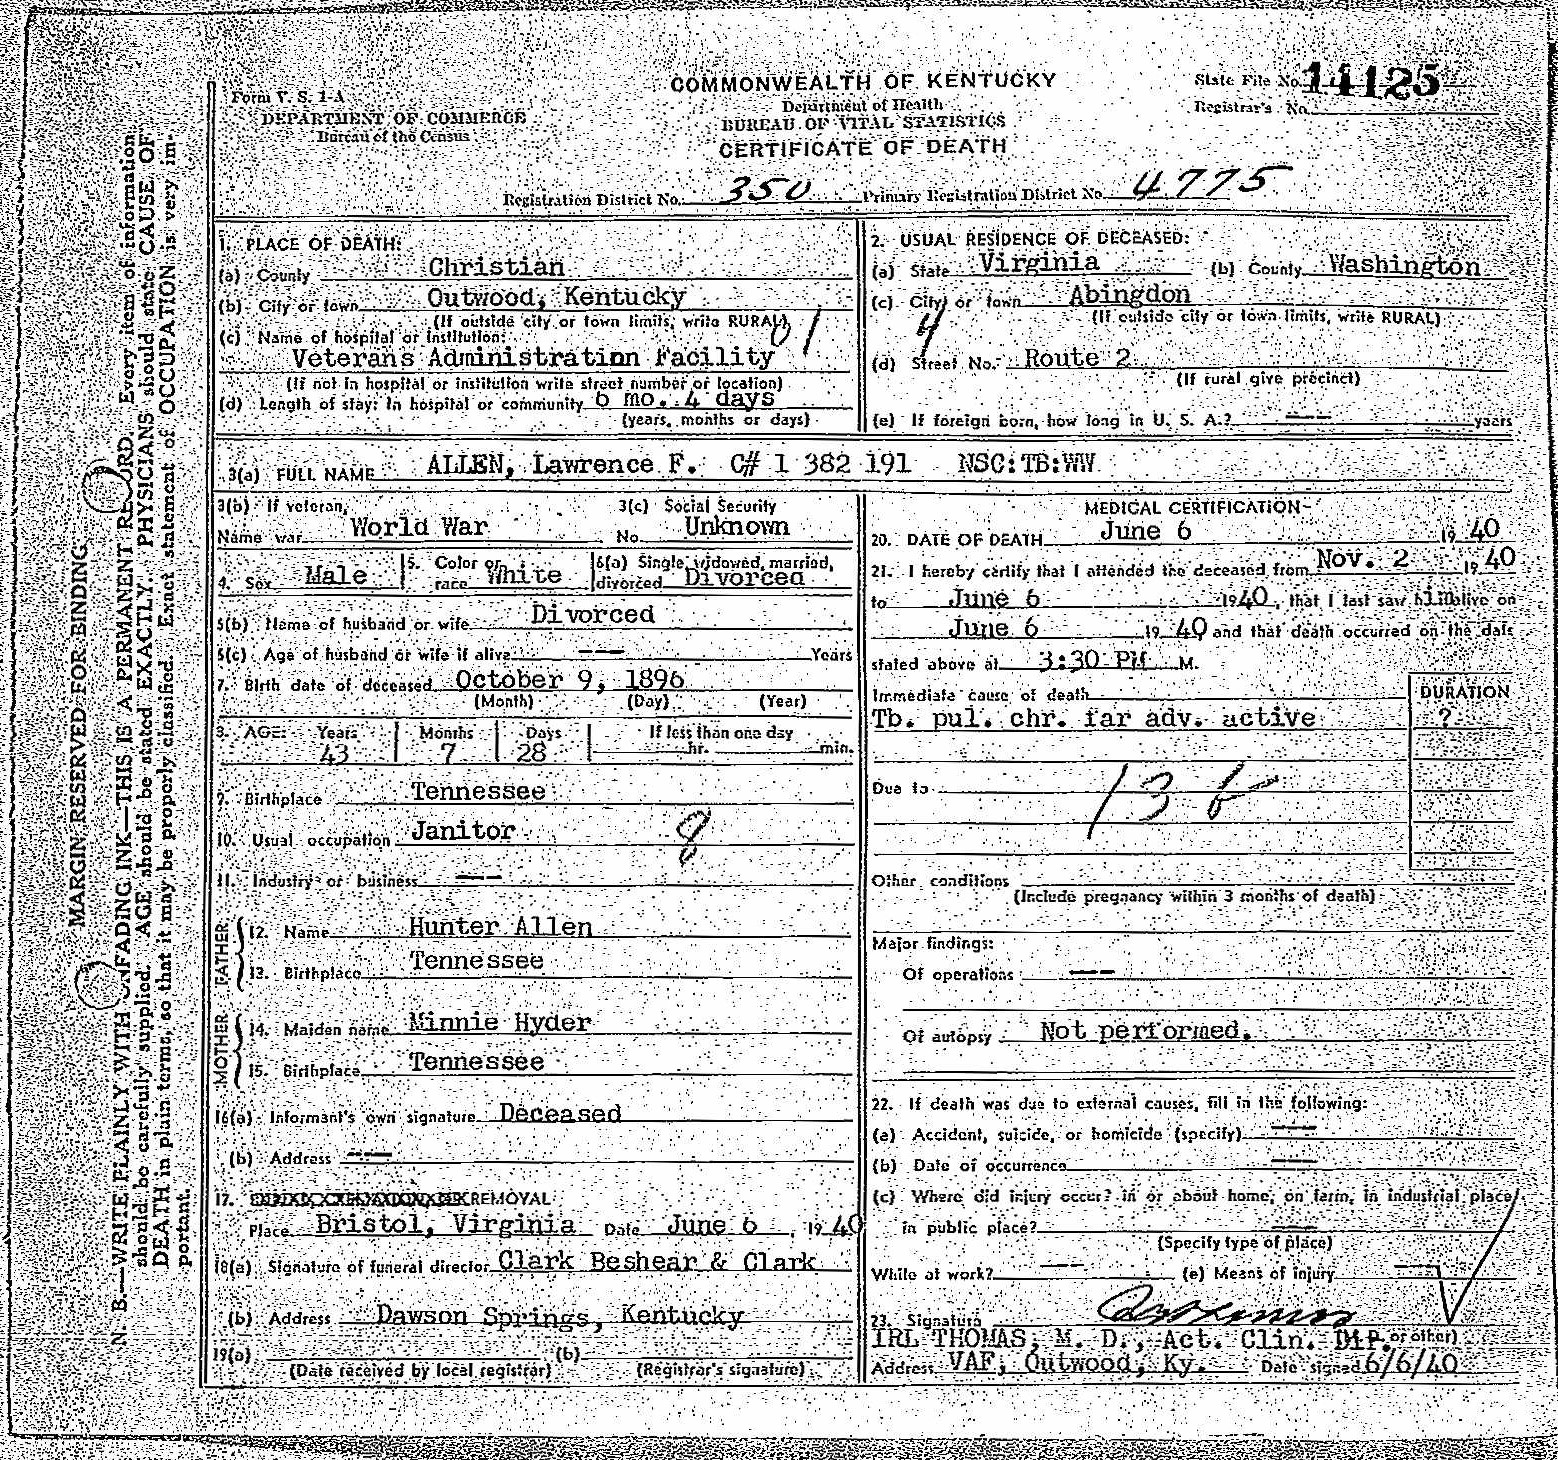 Form V. S. 1-A
DEPARTMENT OF COMMERCE
Bureau of the Census
COMMONWEALTH OF KENTUCKY
Department of Health
BUREAU OF VITAL STATISTICS
CERTIFICATE OF DEATH
State File No. 14125
Registrar's No.
Registration District No. 350 Primary Registration District No. 4775
MARGIN RESERVED FOR BINDING
N. B.—WRITE PLAINLY WITH UNFADING INK—THIS IS A PERMANENT RECORD. Every item of information
should be carefully supplied. AGE should be stated EXACTLY. PHYSICIANS should state CAUSE OF
DEATH in plain terms, so that it may be properly classified. Exact statement of OCCUPATION is very im-
portant.
1. PLACE OF DEATH:
(a) County Christian
(b) City or town Outwood, Kentucky
(If outside city or town limits, write RURAL)
(c) Name of hospital or institution: 01
Veterans Administration Facility
(If not in hospital or institution write street number or location)
(d) Length of stay: In hospital or community 6 mo. 4 days
(years, months or days)
2. USUAL RESIDENCE OF DECEASED:
(a) State Virginia (b) County Washington
(c) City or town Abingdon
(If outside city or town limits, write RURAL)
4
(d) Street No. Route 2
(If rural give precinct)
(e) If foreign born, how long in U. S. A.? --- years
3(a) FULL NAME ALLEN, Lawrence F. C# 1 382 191 NSC:TB:WW
3(b) If veteran, 3(c) Social Security
Name war World War No. Unknown
4. Sex Male 5. Color or race White 6(a) Single, widowed, married, divorced Divorced
6(b) Name of husband or wife Divorced
6(c) Age of husband or wife if alive --- Years
7. Birth date of deceased October 9, 1896
(Month) (Day) (Year)
8. AGE: Years Months Days If less than one day
43 7 28 hr. min.
9. Birthplace Tennessee
10. Usual occupation Janitor 8
11. Industry or business ---
FATHER
12. Name Hunter Allen
13. Birthplace Tennessee
MOTHER
14. Maiden name Minnie Hyder
15. Birthplace Tennessee
16(a) Informant's own signature Deceased
(b) Address ---
17. REMOVAL
Place Bristol, Virginia Date June 6, 1940
18(a) Signature of funeral director Clark Beshear & Clark
(b) Address Dawson Springs, Kentucky
19(a) (b)
(Date received by local registrar) (Registrar's signature)
MEDICAL CERTIFICATION
20. DATE OF DEATH June 6 1940
21. I hereby certify that I attended the deceased from Nov. 2 1940
to June 6 1940, that I last saw him alive on
June 6 1940 and that death occurred on the date
stated above at 3:30 PM M.
Immediate cause of death DURATION
Tb. pul. chr. far adv. active ?
Due to 13 b
Other conditions
(Include pregnancy within 3 months of death)
Major findings:
Of operations ---
Of autopsy Not performed.
22. If death was due to external causes, fill in the following:
(a) Accident, suicide, or homicide (specify) ---
(b) Date of occurrence ---
(c) Where did injury occur? in or about home, on farm, in industrial place,
in public place? ---
(Specify type of place)
While at work? --- (e) Means of injury ---
23. Signature
IRL THOMAS, M. D., Act. Clin. Dir. or other)
Address VAF, Outwood, Ky. Date signed 6/6/40